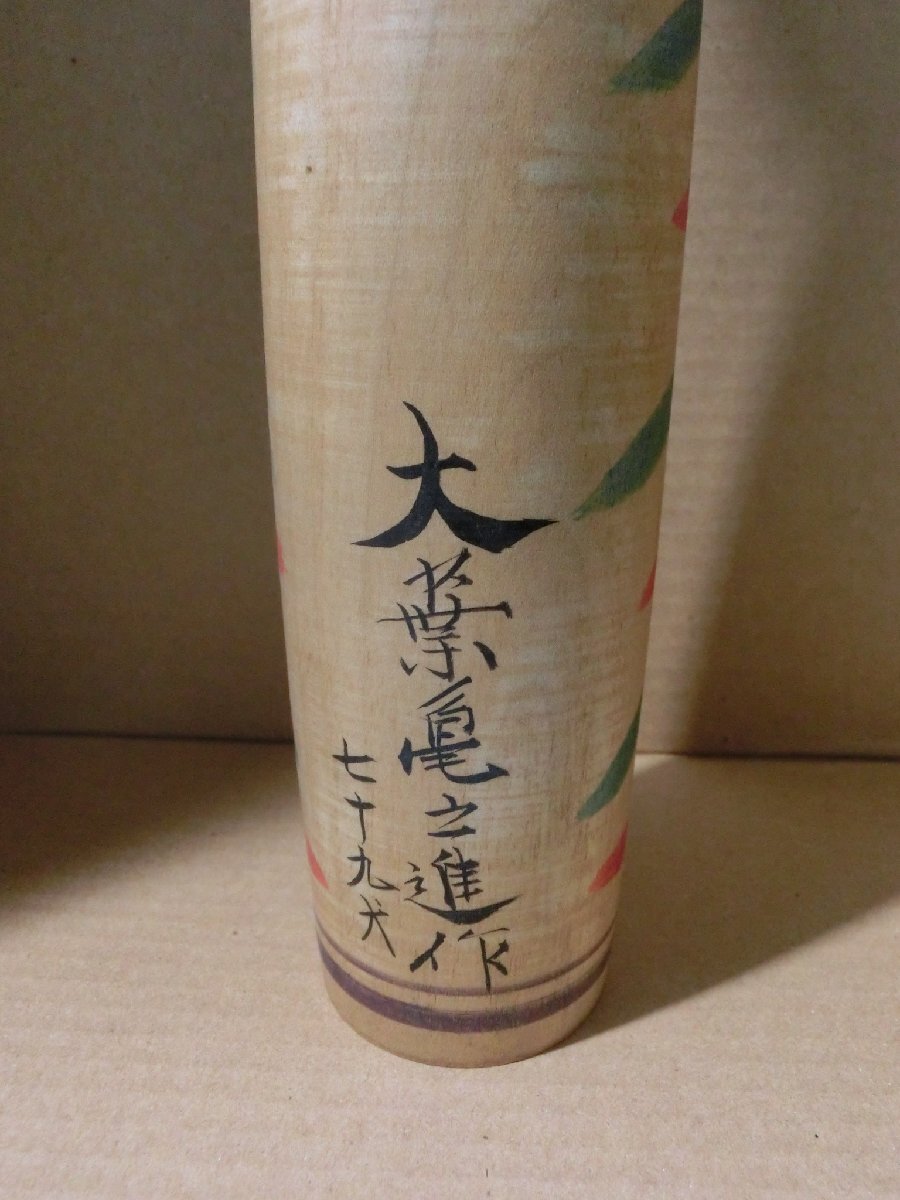 大葉亀之進作
七十九才